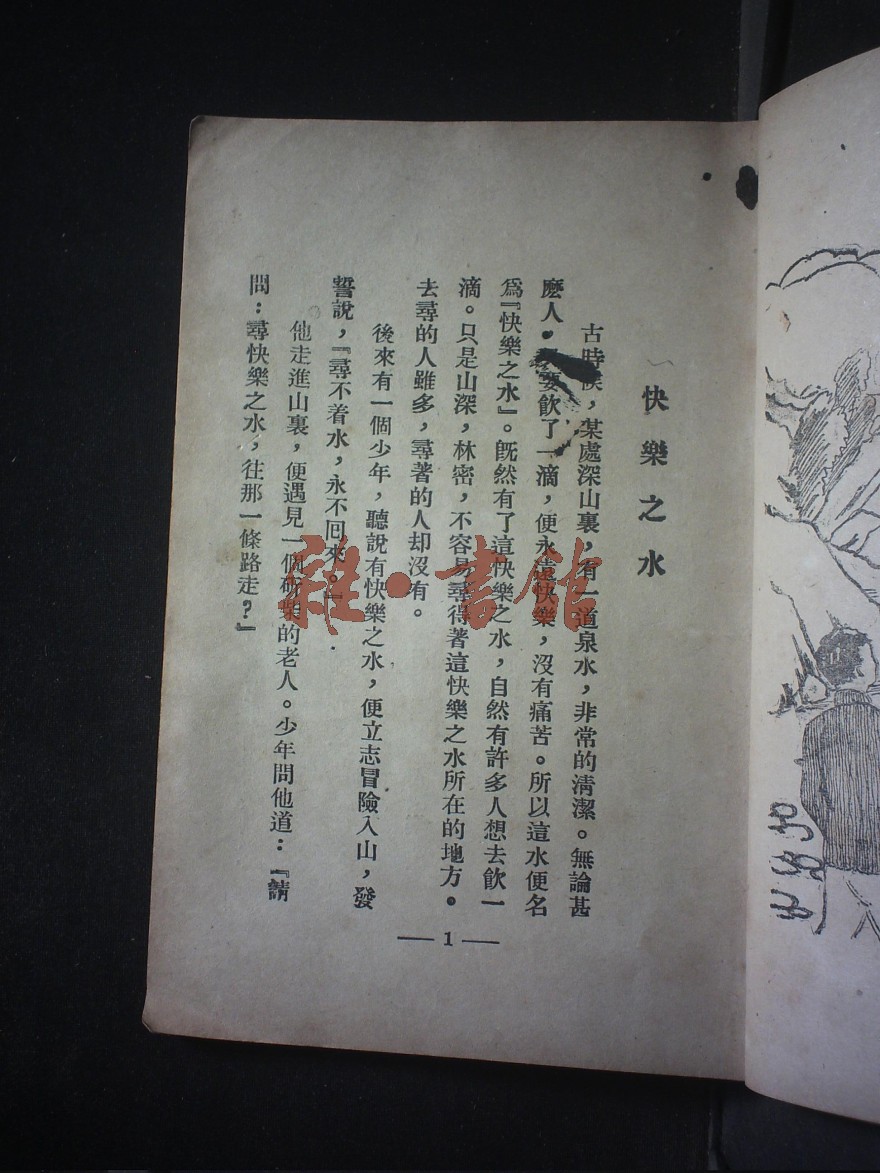 快樂之水
古時候，某處深山裏，有一道泉水，非常的清潔。無論甚
麽人，要飲了一滴，便永遠快樂，沒有痛苦。所以這水便名
爲『快樂之水』。旣然有了這快樂之水，自然有許多人想去飲一
滴。只是山深，林密，不容易尋得著這快樂之水所在的地方。
去尋的人雖多，尋著的人却沒有。
後來有一個少年，聽說有快樂之水，便立志冒險入山，發
誓說，『尋不着水，永不囘來。』
他走進山裏，便遇見一個斫柴的老人。少年問他道：『請
問：尋快樂之水，往那一條路走？』
— 1 —
雜·書館